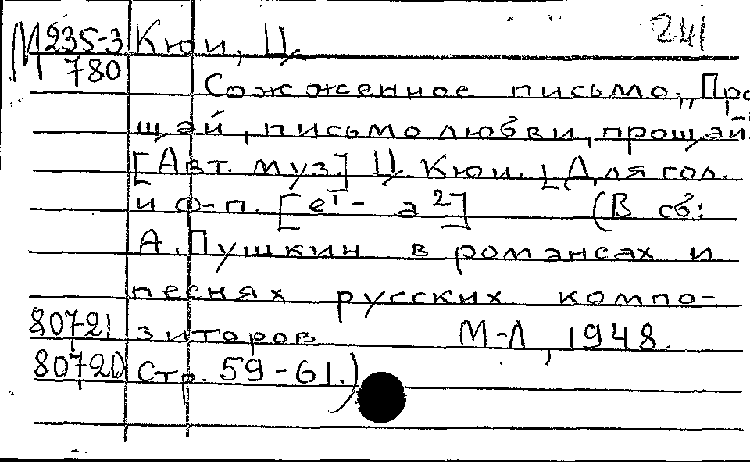 241
М 235-3 Кюи, Ц.
780 Сожженное письмо: „Про-
щай, письмо любви, прощай!
[Авт. муз.] Ц. Кюи. [Для гол.
и ф-п. [e¹ - a²] (В сб:
А. Пушкин в романсах и
песнях русских компо-
80721 зиторов М-Л, 1948.
80720 Стр. 59-61.)